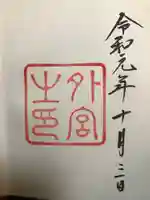 令和元年十月三日
外宮之印